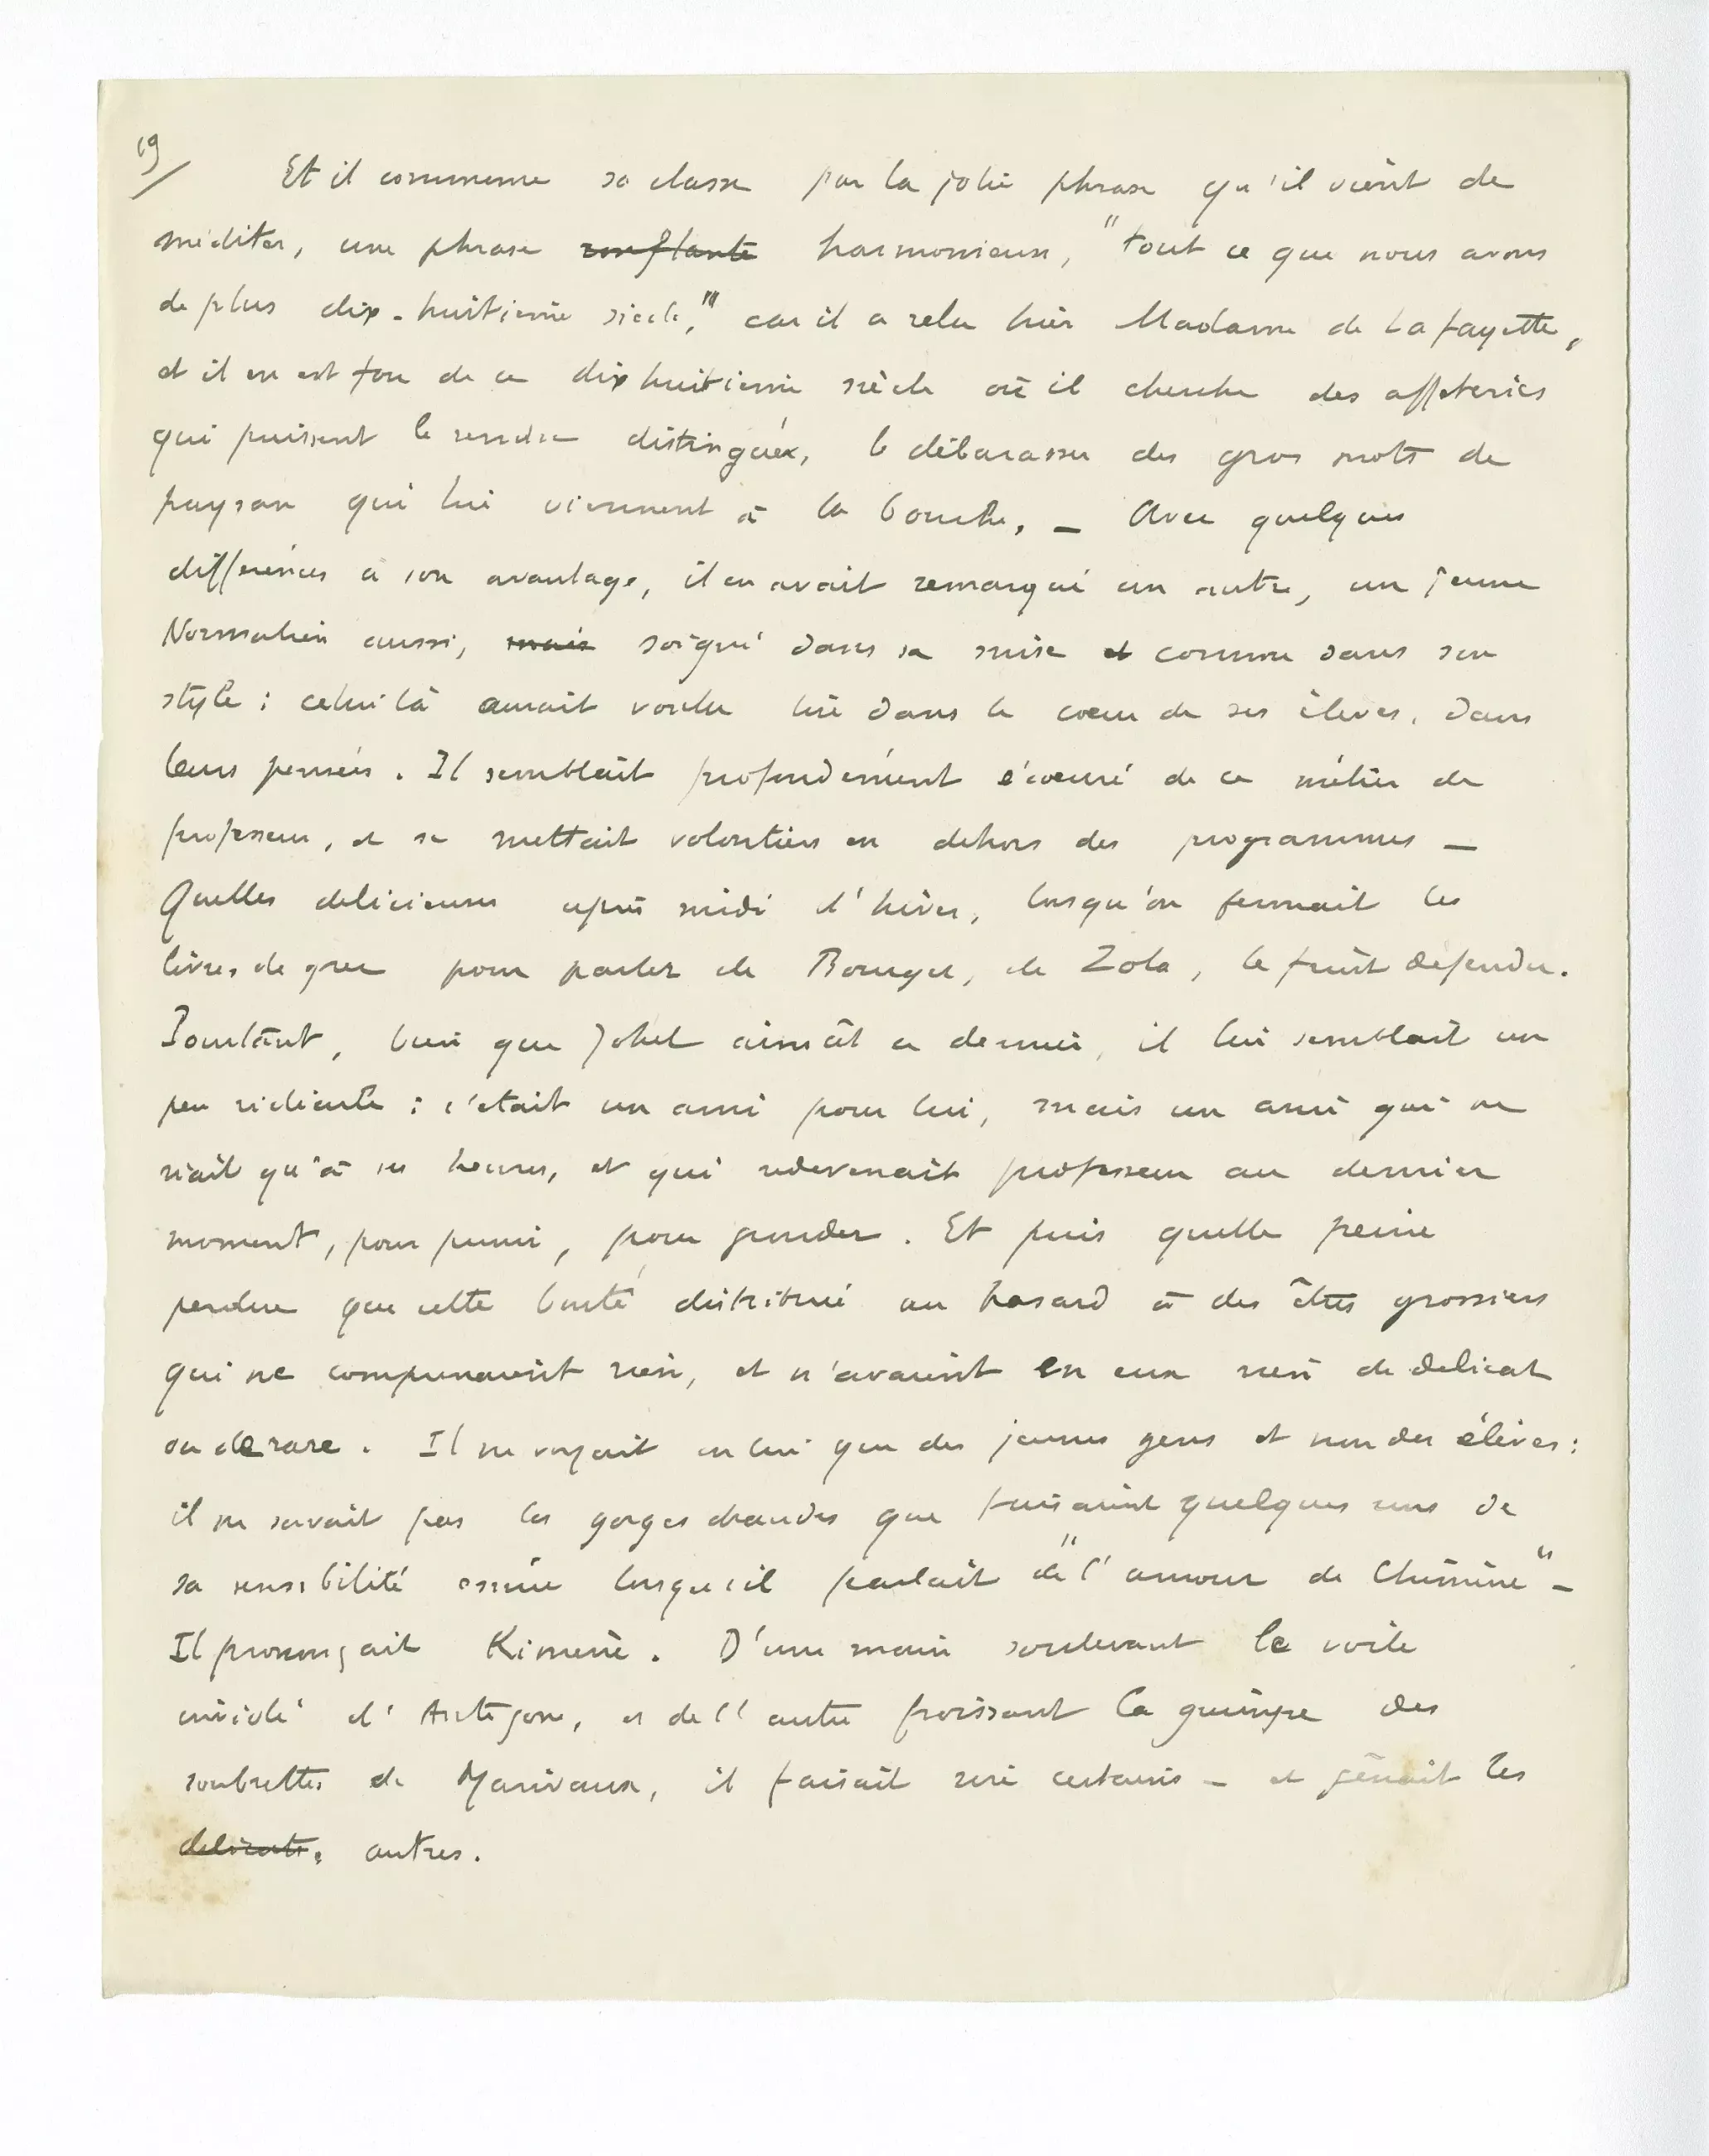 19/
Et il commence sa classe par la jolie phrase qu'il vient de
méditer, une phrase ronflante harmonieuse, "tout ce que nous avons
de plus dix-huitième siècle," car il a relu hier Madame de Lafayette,
et il en est fou de ce dix huitième siècle où il cherche des affèteries
qui puissent le rendre distingué, le débarasser des gros mots de
paysan qui lui viennent à la bouche, – Avec quelques
différences à son avantage, il en avait remarqué un autre, un jeune
Normalien aussi, mais soigné dans sa mise et comme dans son
style : celui là aurait voulu lire dans le coeur de ses élèves, dans
leurs pensées. Il semblait profondément écoeuré de ce métier de
professeur, et se mettait volontiers en dehors des programmes –
Quelles delicieuses après midi d'hiver, lorsqu'on fermait les
livres de grec pour parler de Bourget, de Zola, le fruit défendu.
Pourtant, bien que Johel aimât ce dernier, il lui semblait un
peu ridicule : c'était un ami pour lui, mais un ami qui ne
riait qu'à ses heures, et qui redevenait professeur au dernier
moment, pour punir, pour gronder. Et puis quelle peine
perdue que cette bonté distribué au hasard à des êtres grossiers
qui ne comprenaient rien, et n'avaient en eux rien de delicat
ou de rare. Il ne voyait en lui que des jeunes gens et non des élèves :
il ne savait pas les gorges chaudes que faisaient quelques uns de
sa sensibilité lorsqu'il parlait de "l'amour de Chimène" –
Il prononçait Kimène. D'une main soulevant le voile
inviolé d'Antigone, et de l'autre froissant la guimpe des
soubrettes de Marivaux, il faisait rire certains – et gênait les
delicats, autres.